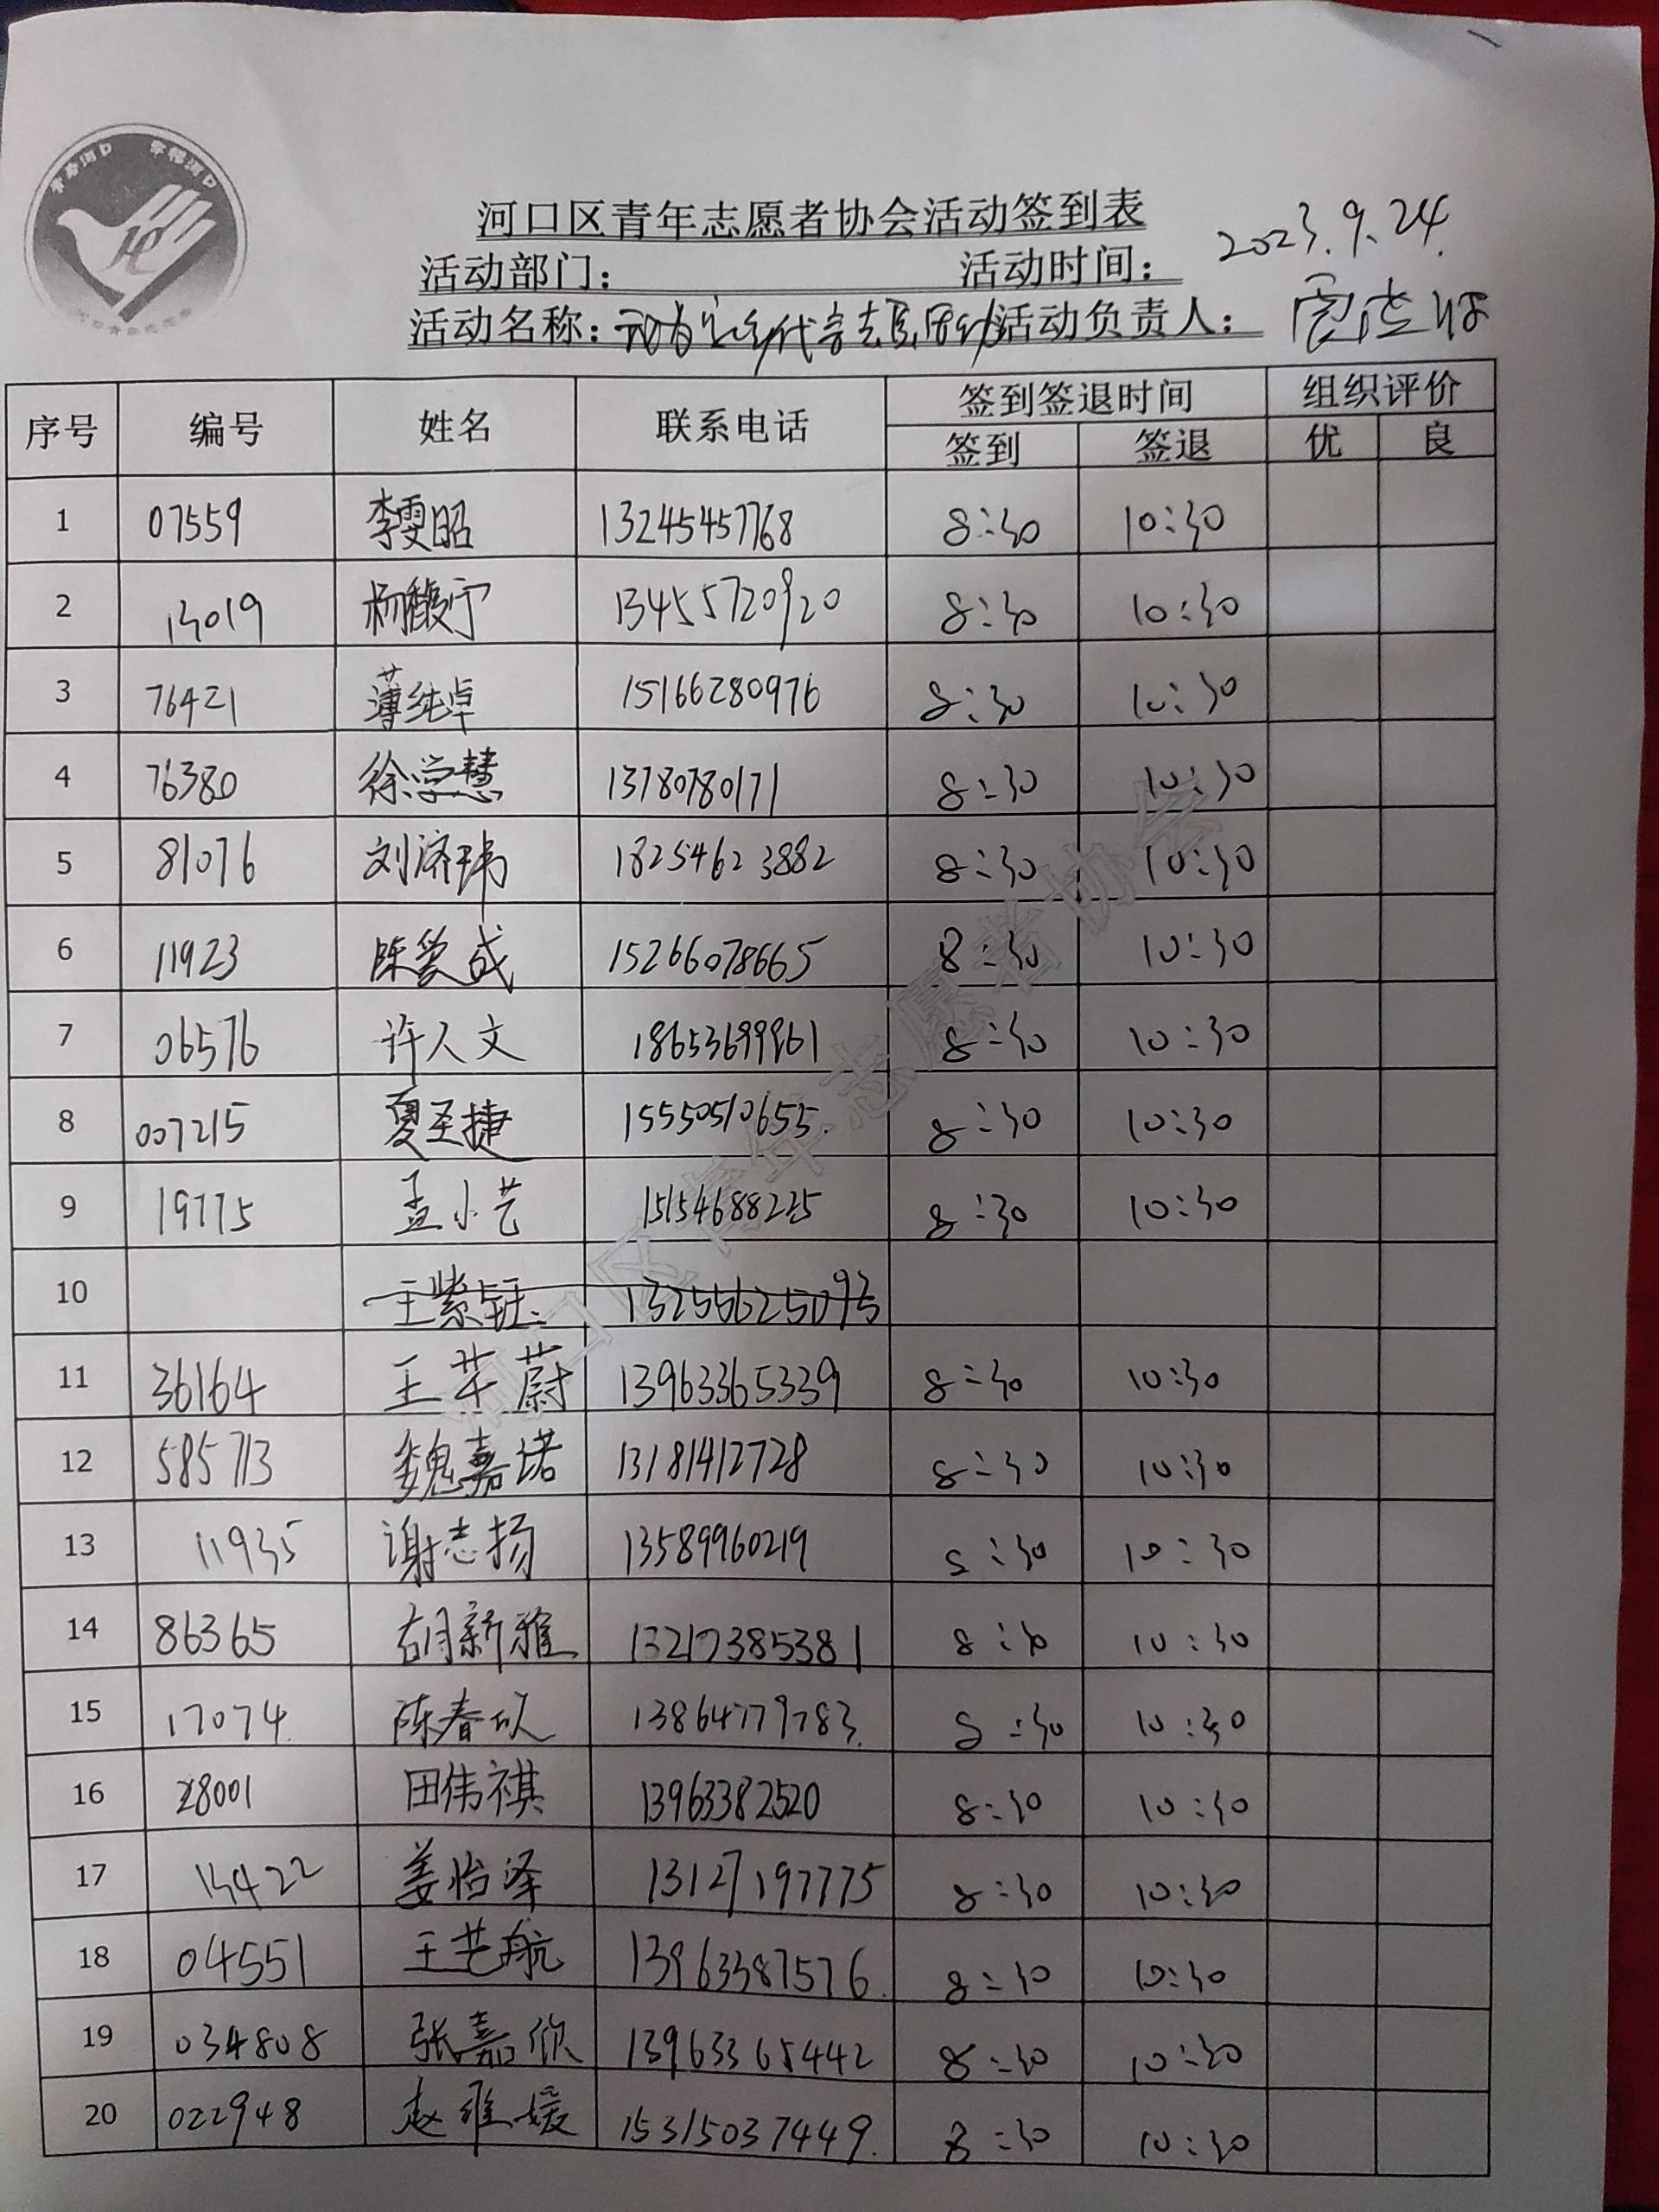 河口区青年志愿者协会活动签到表
活动部门： 活动时间： 2023.9.24.
活动名称： 活动负责人：
序号 编号 姓名 联系电话 签到签退时间 组织评价
签到 签退 优 良
1 07559 李雯昭 13245457768 8:30 10:30
2 13019 杨馥宁 13455720920 8:30 10:30
3 76421 薄纯卓 15166280976 8:30 10:30
4 76380 徐学慧 13780780171 8:30 10:30
5 81076 刘济玮 18254623882 8:30 10:30
6 11923 陈曼成 15266078665 8:30 10:30
7 06576 许人文 18653699861 8:30 10:30
8 007215 夏至捷 15550510655. 8:30 10:30
9 19775 孟小艺 15154688225 8:30 10:30
10 王紫钰 13255625093
11 36164 王芊蔚 13963365339 8:30 10:30
12 585713 魏嘉诺 13181412728 8:30 10:30
13 11935 谢志扬 13589960219 8:30 10:30
14 86365 胡新雅 13217385381 8:30 10:30
15 17074. 陈春 13864779783. 8:30 10:30
16 28001 田伟祺 13963382520 8:30 10:30
17 13422 姜怡泽 13127197775 8:30 10:30
18 04551 王艺航 13963387576. 8:30 10:30
19 034808 张嘉欣 13963365442 8:30 10:30
20 022948 赵雅媛 15315037449. 8:30 10:30
河口区青年志愿者协会